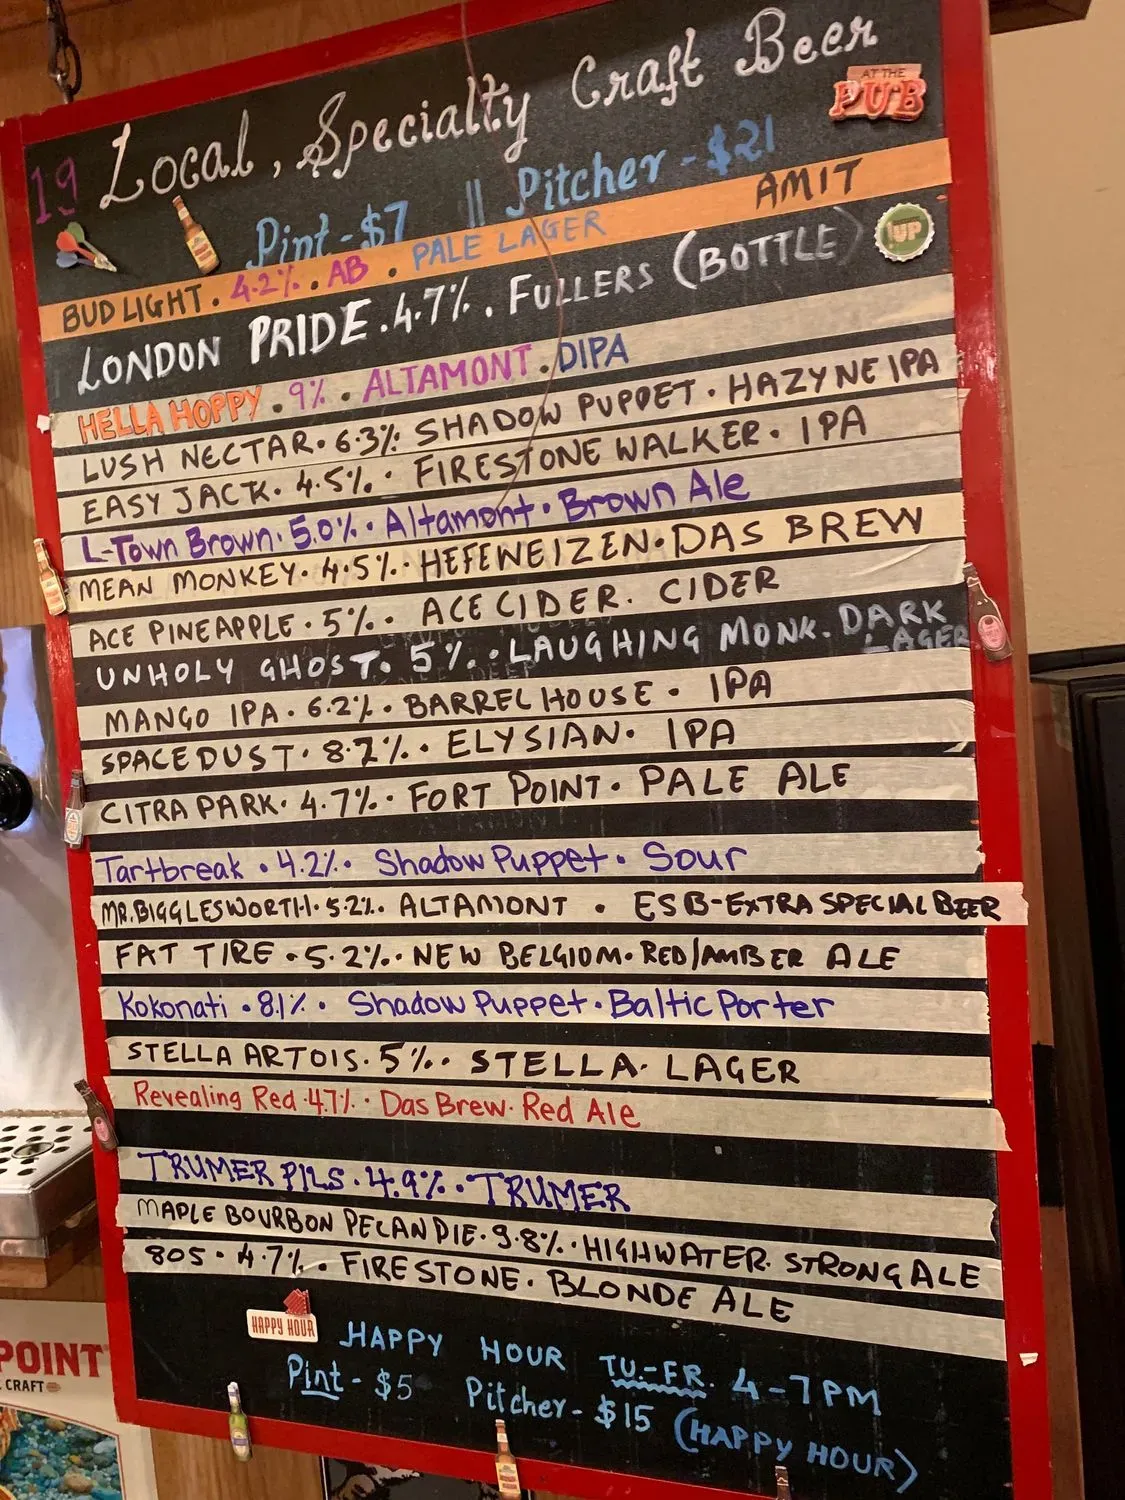 19 Local, Specialty Craft Beer
AT THE PUB
Pint - $7 || Pitcher - $21
BUD LIGHT . 4.2% . AB . PALE LAGER AMIT
UP
LONDON PRIDE . 4.7% . FULLERS (BOTTLE)
HELLA HOPPY . 9% . ALTAMONT . DIPA
LUSH NECTAR . 6.3% . SHADOW PUPPET . HAZY NE IPA
EASY JACK . 4.5% . FIRESTONE WALKER . IPA
L-Town Brown . 5.0% . Altamont . Brown Ale
MEAN MONKEY . 4.5% . HEFEWEIZEN . DAS BREW
ACE PINEAPPLE . 5% . ACE CIDER . CIDER
UNHOLY GHOST . 5% . LAUGHING MONK . DARK LAGER
MANGO IPA . 6.2% . BARREL HOUSE . IPA
SPACE DUST . 8.2% . ELYSIAN . IPA
CITRA PARK . 4.7% . FORT POINT . PALE ALE
Tartbreak . 4.2% . Shadow Puppet . Sour
MR. BIGGLESWORTH . 5.2% . ALTAMONT . ESB-EXTRA SPECIAL BEER
FAT TIRE . 5.2% . NEW BELGIUM . RED/AMBER ALE
Kokonati . 8.1% . Shadow Puppet . Baltic Porter
STELLA ARTOIS . 5% . STELLA . LAGER
Revealing Red . 4.7% . Das Brew . Red Ale
TRUMER PILS . 4.9% . TRUMER
MAPLE BOURBON PECAN PIE . 9.8% . HIGHWATER . STRONG ALE
805 . 4.7% . FIRESTONE . BLONDE ALE
HAPPY HOUR
HAPPY HOUR TU.-FR. 4-7PM
Pint - $5 Pitcher - $15 (HAPPY HOUR)
POINT
CRAFT